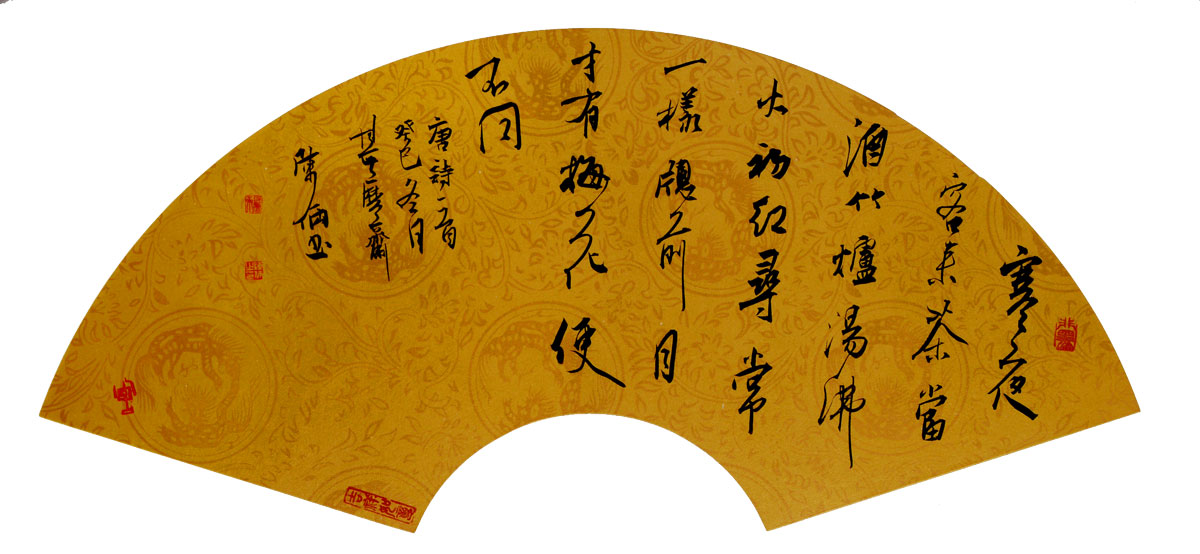 寒夜
客来茶當
酒竹爐湯沸
火初紅尋常
一樣牕前月
才有梅花便
不同
唐詩一首
癸巳冬月
齋
陳 書